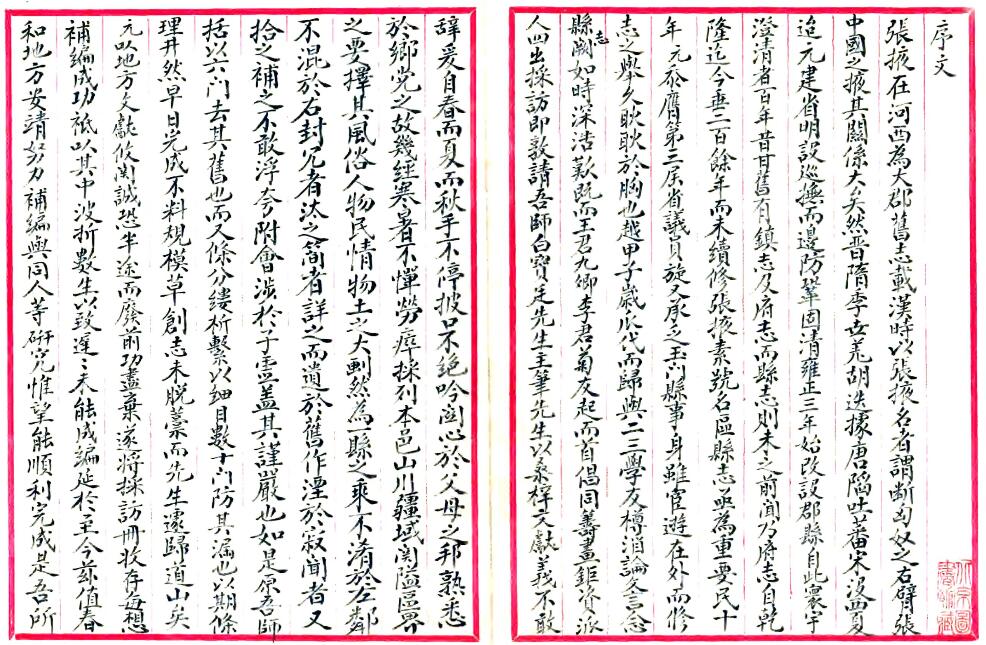 序文
張掖在河西為大郡舊志載漢時以張掖名者謂斷匈奴之右臂張
中國之掖其關係大矣然晋隋李世羌胡迭據唐陷吐蕃宋沒西夏
迨元建省明設巡撫而邊防鞏固清雍正三年始改設郡縣自此寰宇
澄清者百年昔甘舊有鎮志及府志而縣志則未之前聞乃府志自乾
隆迄今垂二百餘年而未續修張掖素號名區縣志亟為重要民十
年元忝膺第三屆省議員旋又承乏玉門縣事身雖宦遊在外而修
志之舉久耿耿於胸也越甲子歲瓜代而歸與二三學友樽酒論文言念
縣志闕如時深浩歎既而王君九卿李君菊友起而首倡同籌畫鉅資派
人四出採訪即敦請吾師白寶廷先生主筆先生以桑梓文獻義不敢
辞爰自春而夏而秋手不停披口不絕吟關心於父母之邦熟悉
於鄉党之故幾經寒暑不憚勞瘁採列本邑山川疆域關隘區界
之要擇其風俗人物民情物土之大劃然為一縣之乘不淆於左鄰
不混於右封冗者汰之簡者詳之而遺於舊作湮於寂聞者又
拾之補之不敢浮夸附會涉於子虛盖其謹嚴也如是原吾師
括以六門去其舊也而又條分縷析繫以细目數十门防其漏也以期條
理井然早日完成不料規模草創志未脱藁而先生遽歸道山矣
元以地方文獻攸関誠恐半途而廢前功盡棄遂將採訪冊收存每想
補編成功祗以其中波折數生以致遲〻未能成編延於至今茲值春
和地方安靖努力補編與同人等研究惟望能順利完成是吾所